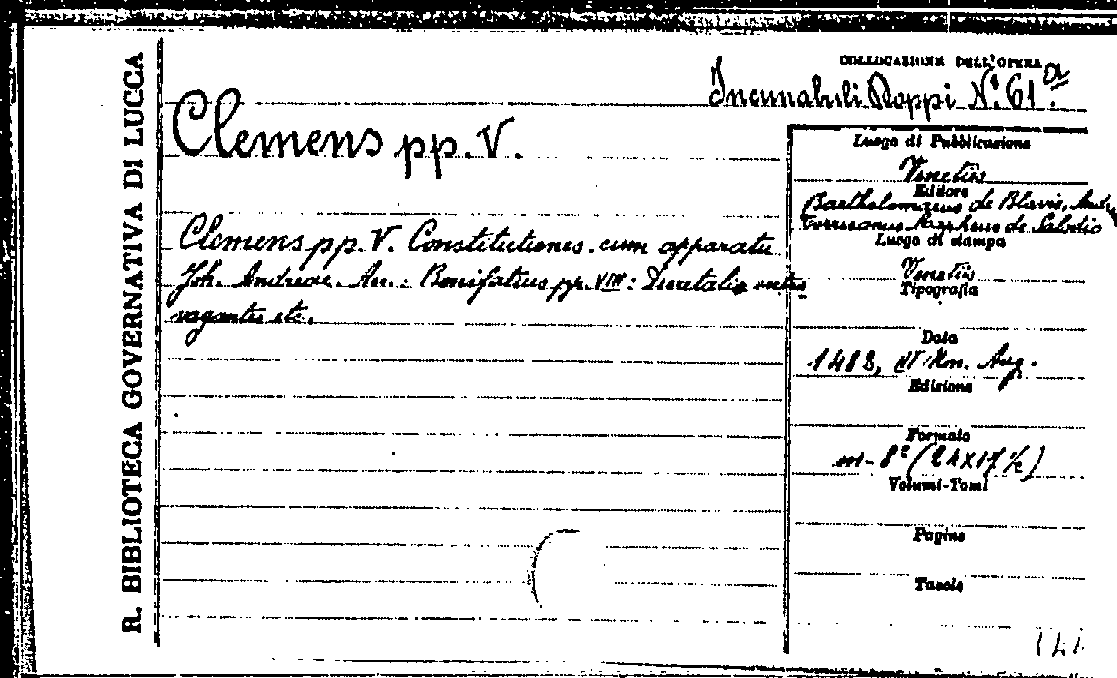 R. BIBLIOTECA GOVERNATIVA DI LUCCA
COLLOCAZIONE DELL'OPERA
Incunabuli Roppi N.° 61.a
Clemens pp. V.
Clemens pp. V. Constitutiones cum apparatu
Joh. Andreae. An.: Bonifatius pp. VIII: Decretalis extra
vagantes etc.
Luogo di Pubblicazione
Venetiis
Editore
Bartholomaeus de Blavis, Andr
Torresanus Mapheus de Salodio
Luogo di stampa
Venetiis
Tipografia
Data
1483, Aug.
Edizione
Formato
m-8° (24x17 ½)
Volumi-Tomi
Pagine
Tavole